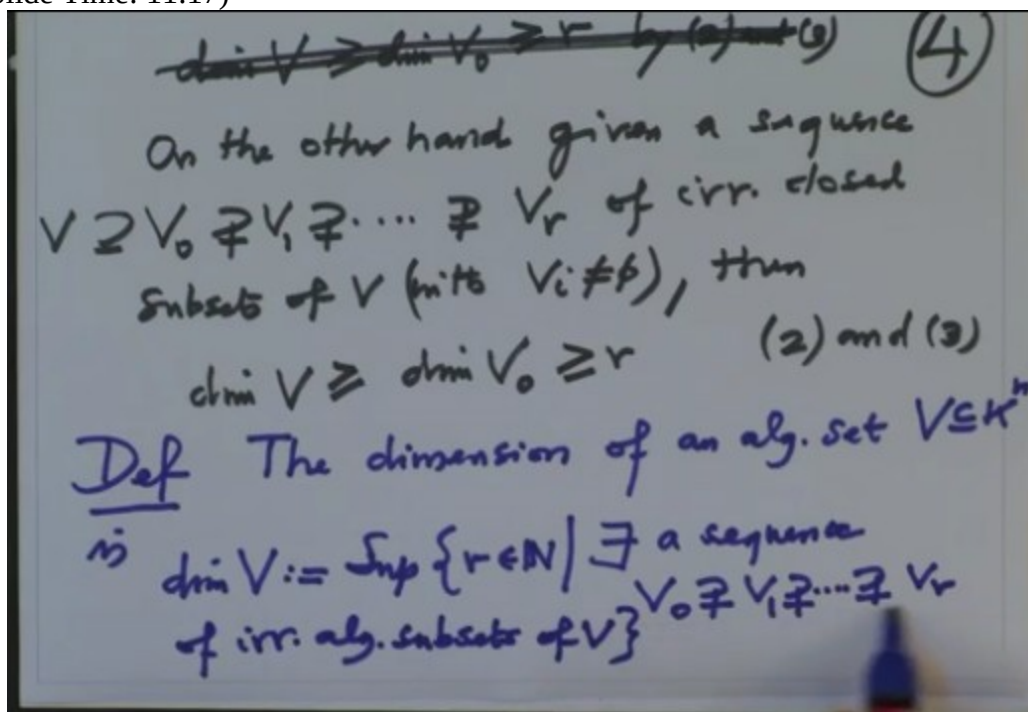 (Slide Time: 11:17)
dim V ≥ dim V₀ ≥ r by (2) and (3)
④
On the other hand given a sequence
V ⊇ V₀ ⊋ V₁ ⊋ .... ⊋ Vᵣ of irr. closed
subsets of V (with Vᵢ ≠ ϕ), then
dim V ≥ dim V₀ ≥ r (2) and (3)
Def The dimension of an alg. set V ⊆ Kⁿ
is dim V := Sup {r ∈ ℕ | ∃ a sequence
V₀ ⊋ V₁ ⊋ .... ⊋ Vᵣ
of irr. alg. subsets of V}